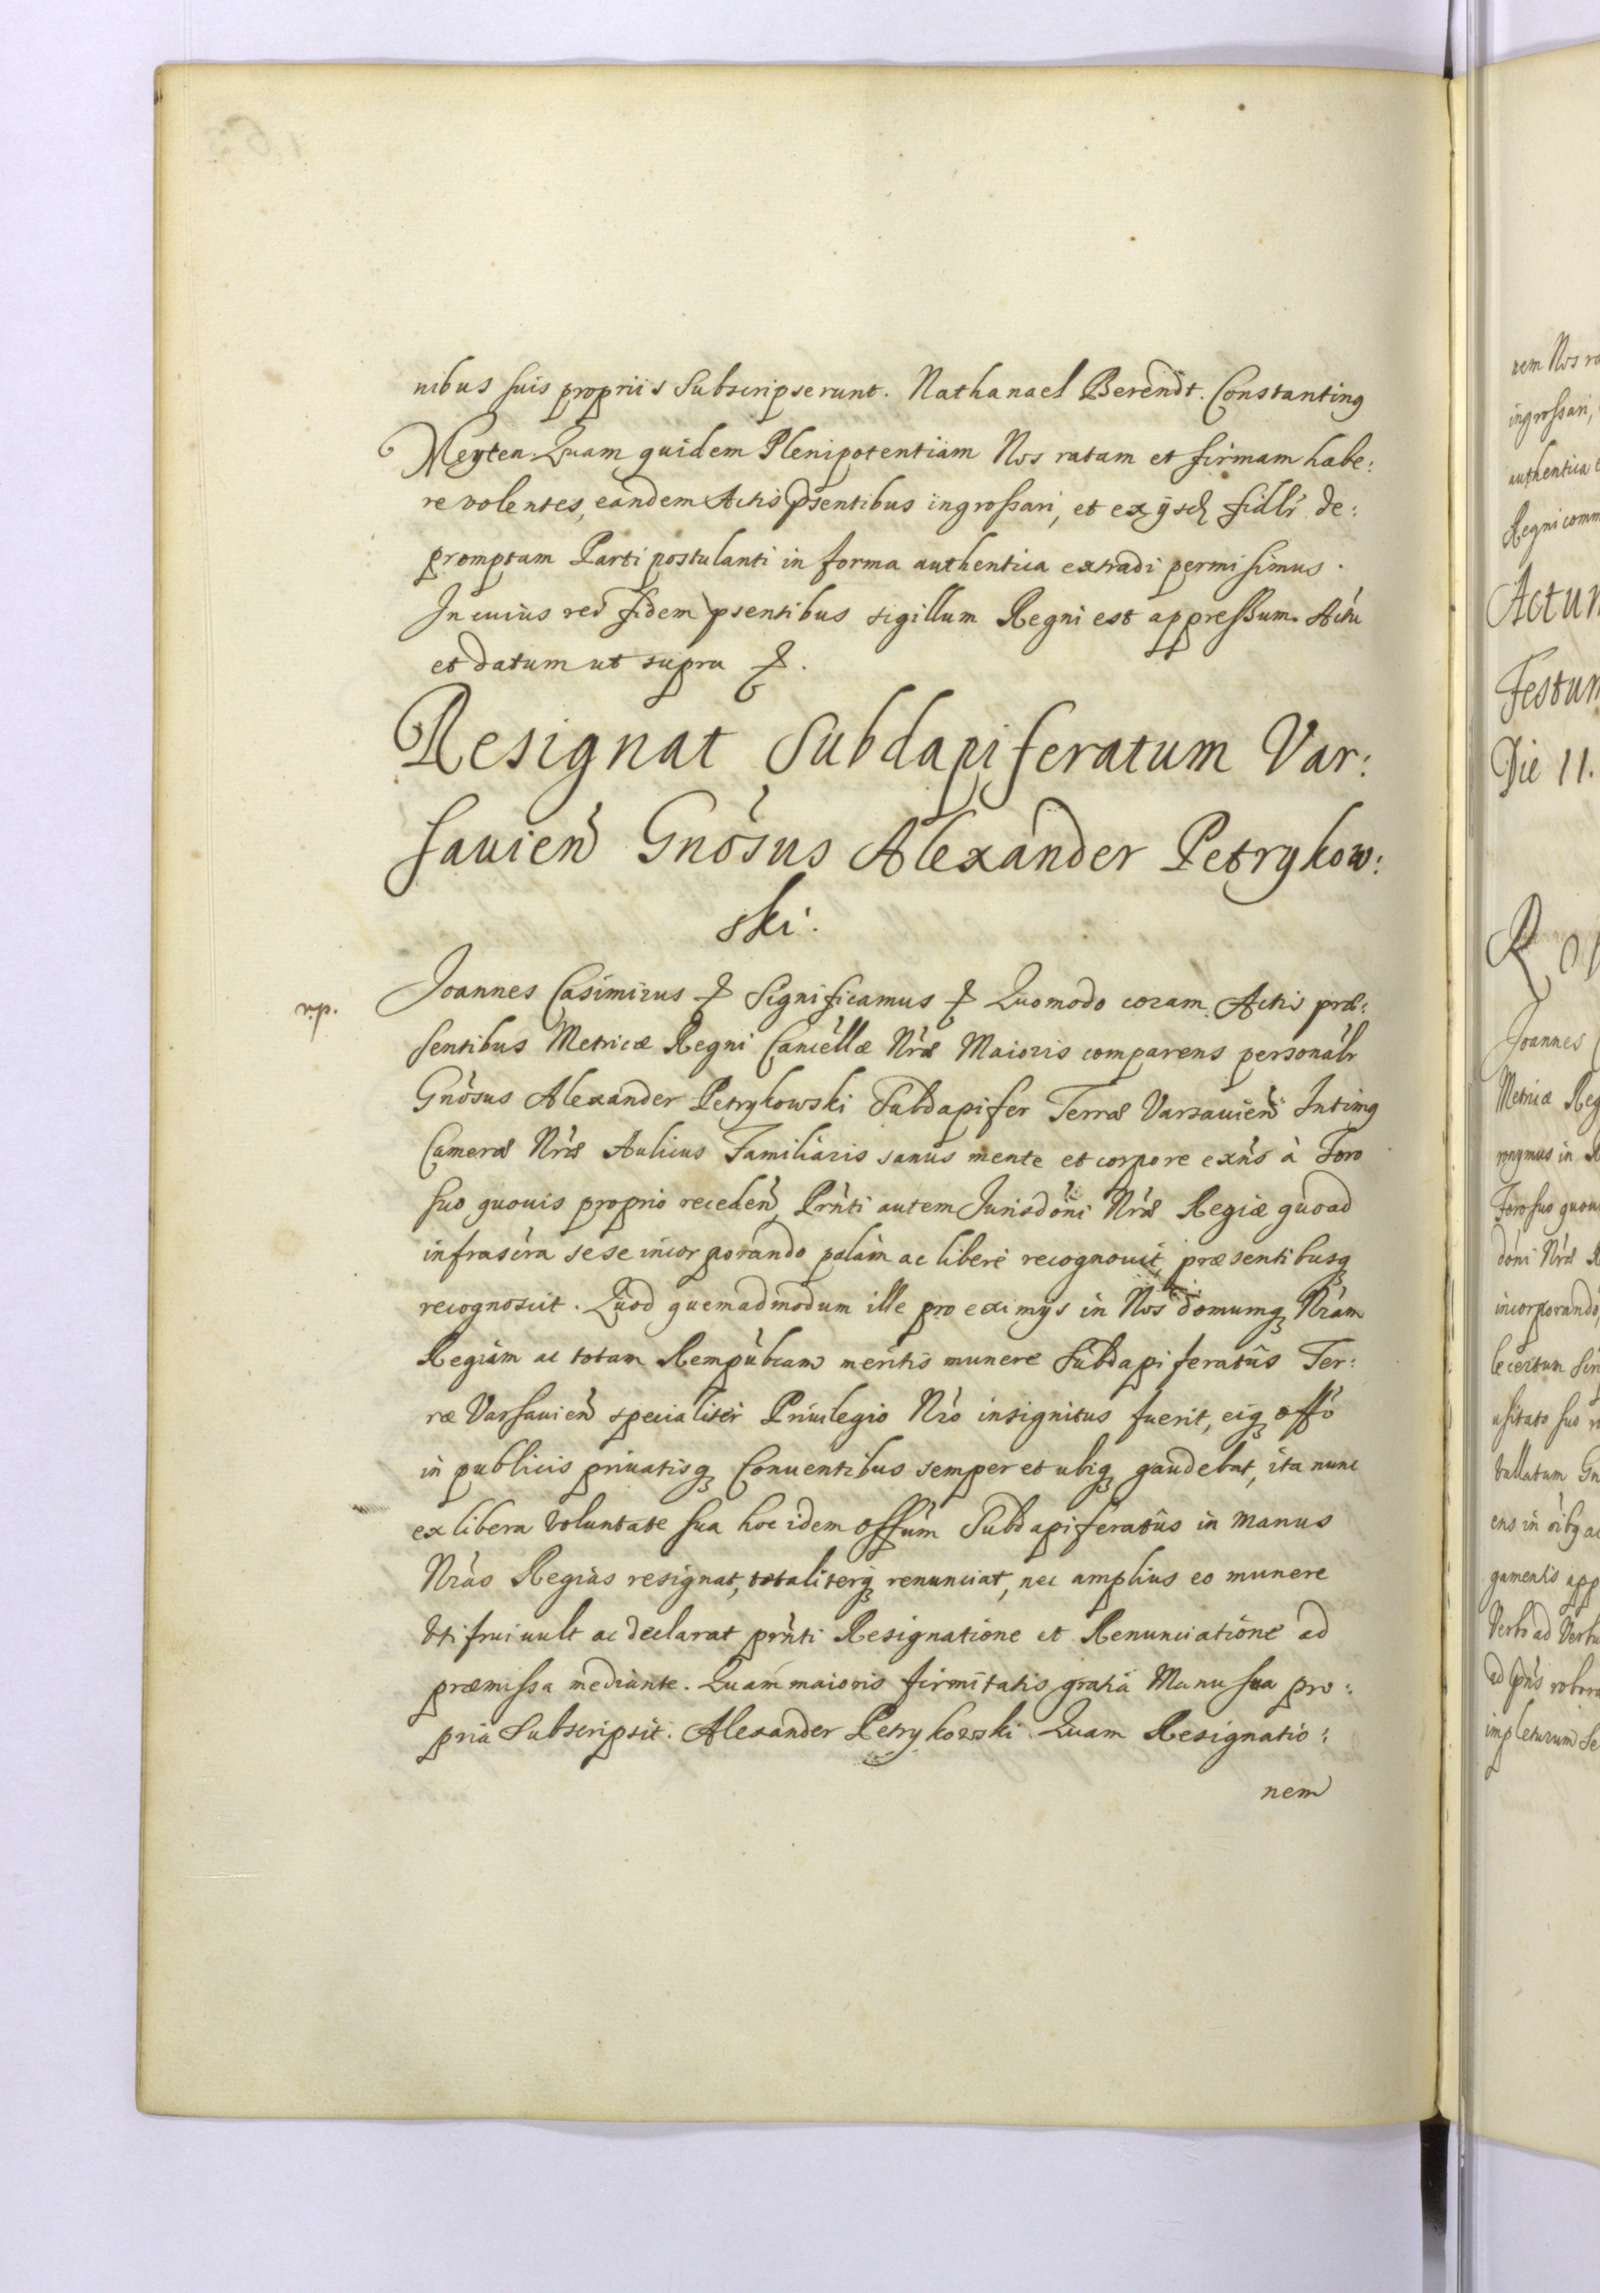 nibus suis propriis Subscripserunt. Nathanael Berendt. Constantinꝰ
Meyten. Quam quidem Plenipotentiam Nos ratam et firmam habe:
re volentes, eandem Actis pñtibus ingrossari, et ex ijsd fidlr de:
promptam Parti postulanti in forma authentica extradi permisimus.
In cuius rei fidem psentibus sigillum Regni est appressum. Actũ
et datum ut supra &.
Resignat Subdapiferatum Var:
savień Gnosus Alexander Petrykow:
ski.
Joannes Casimirus & Significamus & Quomodo coram Actis præ:
sentibus Metricæ Regni Cancellæ Nræ Maioris comparens personalr
Gnosus Alexander Petrykowski Subdapifer Terræ Varsavień Intimꝰ
Cameræ Nræ Aulicus Familiaris sanus mente et corpore exñs à Foro
suo quovis proprio recedeń, Prñti autem Jurisdoni Nræ Regiæ quoad
infrascra sese incorporando palàm ac liberè recognovit, præsentibusq
recognoscit. Quod quemadmodum ille pro eximijs in Nos domumq Nram
Regiam ac totam Rempubcam meritis munere Subdapiferatûs Ter:
ræ Varsavień specialiter Privilegio Nro insignitus fuerit, eiq offo
in publicis privatisq Conventibus semper et ubiq gaudebat, ita nunc
ex libera voluntate sua hoc idem offum Subdapiferatûs in manus
Nras Regias resignat, totaliterq renunciat, nec amplius eo munere
Uti frui vult ac declarat prñti Resignatione et Renunciatione ad
præmissa mediante. Quam maioris firmitatis gratiâ Manu sua pro:
priâ Subscripsit. Alexander Petrykowski. Quam Resignatio:
nem
rem Nos ra
ingrossari,
authentica e
Regni comm
Actum
Festum
Die 11.
Joannes C
Metricæ Reg
Foro suo quov
doni Nræ R
incorporando,
usitato suo
vallatum Gn
gamentis app
Verbo ad Verbu
impleturum se